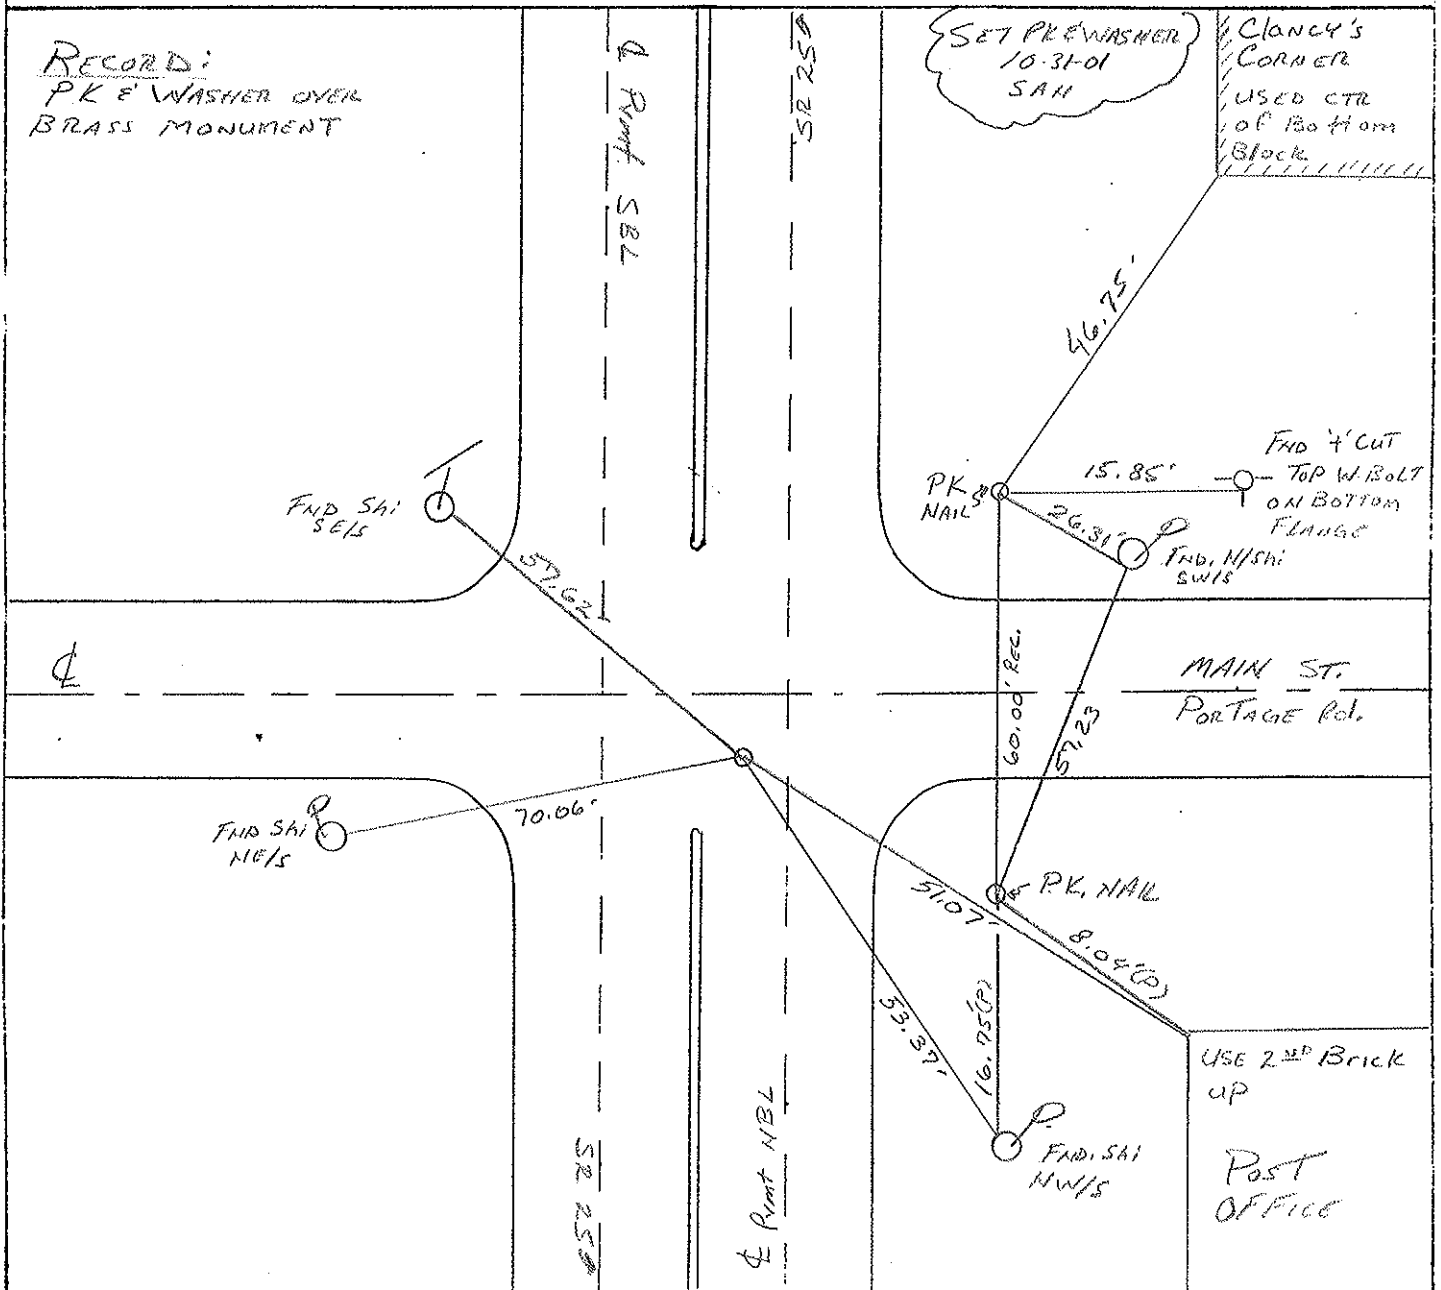 RECORD:
PK & WASHER OVER
BRASS MONUMENT
℄ Pvmt. SBL
SR 250
SET PK & WASHER
10-31-01
SAH
Clancy's
Corner
USED CTR
of Bottom
Block
46.75'
FND '+' CUT
TOP W. BOLT
ON BOTTOM
FLANGE
15.85'
PK
NAIL
26.31'
FND. N/Shi
SW/S
FND Shi
SE/S
57.62'
℄
60.00' REC.
57.23
MAIN ST.
PORTAGE Rd.
70.06'
FND Shi
NE/S
P.K. NAIL
51.07'
8.04'(P)
53.37'
16.75'(P)
USE 2ND Brick
UP
FND. Shi
NW/S
POST
OFFICE
SR 250
℄ Pvmt NBL